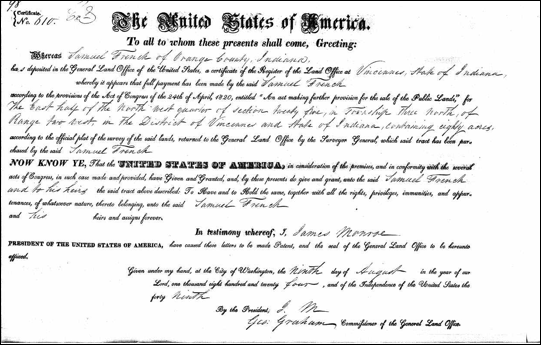 98
Certificate,
No. 610.
The United States of America.
To all to whom these presents shall come, Greeting:
Whereas Samuel French of Orange County, Indiana,
has deposited in the General Land Office of the United States, a certificate of the Register of the Land Office at Vincennes, State of Indiana,
whereby it appears that full payment has been made by the said Samuel French
according to the provisions of the Act of Congress of the 24th of April, 1820, entitled "An act making further provision for the sale of the Public Lands," for
The East half of the North West quarter of section twenty five, in Township three North, of
Range two west, in the District of Vincennes and State of Indiana, containing eighty acres,
according to the official plat of the survey of the said lands, returned to the General Land Office by the Surveyor General, which said tract has been pur-
chased by the said Samuel French
NOW KNOW YE, That the UNITED STATES OF AMERICA, in consideration of the premises, and in conformity with the several
acts of Congress, in such case made and provided, have Given and Granted, and, by these presents do give and grant, unto the said Samuel French
and to his heirs the said tract above described: To Have and to Hold the same, together with all the rights, privileges, immunities, and appur-
tenances, of whatsoever nature, thereto belonging, unto the said Samuel French
and his heirs and assigns forever.
In testimony whereof, I, James Monroe
PRESIDENT OF THE UNITED STATES OF AMERICA, have caused these letters to be made Patent, and the seal of the General Land Office to be hereunto
affixed.
Given under my hand, at the City of Washington, the Ninth day of August in the year of our
Lord, one thousand eight hundred and twenty four, and of the Independence of the United States the
forty Ninth
By the President, J. M
Geo: Graham Commissioner of the General Land Office.